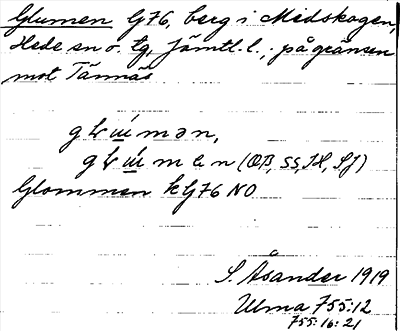 Glumen G76, berg i Medskogen,
Hede sn o. tg, Jämtl. l.; på gränsen
mot Tännäs
men (OB, SS, JH, SJ)
Glommen k G76 NO
S. Åsander 1919
Ulma 755:12
755:16:21